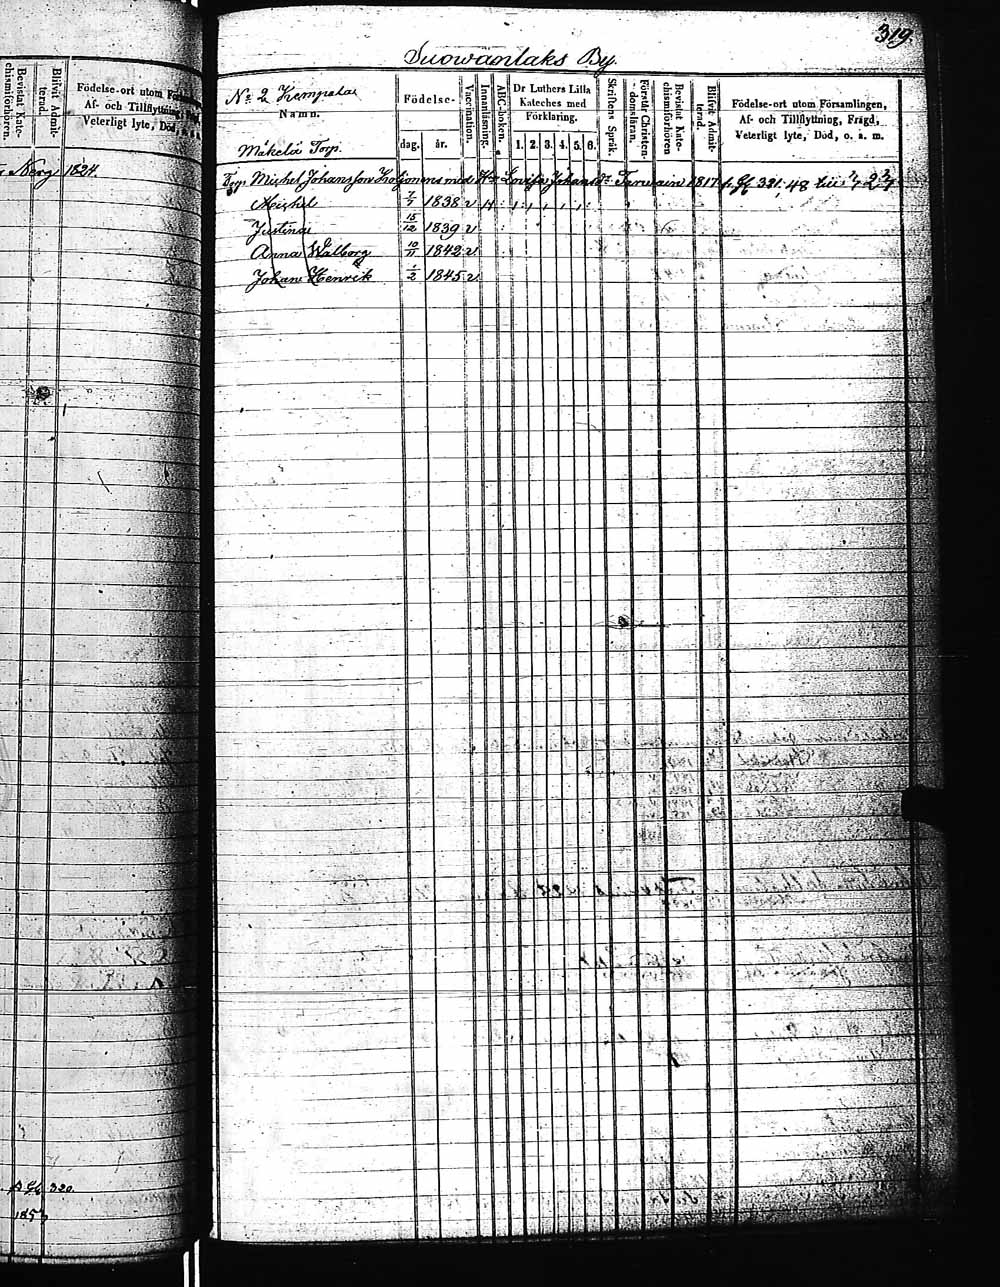 319.
Suowanlaks By.
Bevistat Kate-
chismiförhören.
Blifvit Admit-
terad.
Födelse-ort utom Församlingen,
Af- och Tillflyttning,
Veterligt lyte, Död, o. a. m.
Nerg 1824.
320.
1853
No 2 Kempalas
Namn.
Mäkelä Torp.
Födelse-
dag. år.
Vaccination.
Innanläsning.
ABC-boken.
Dr Luthers Lilla
Kateches med
Förklaring.
1. 2. 3. 4. 5. 6.
Skriftens Språk.
Förstår Christen-
domsläran.
Bevistat Kate-
chismiförhören
Blifvit Admit-
terad.
Födelse-ort utom Församlingen,
Af- och Tillflyttning, Frägd,
Veterligt lyte, Död, o. a. m.
Torp. Michel Johansson med Lovisa Johansdr 1817 321. 48
Michel 1838 v
Justina 15/12 1839 v
Anna Walborg 10/11 1842 v
Johan Henrik 1/2 1845 v